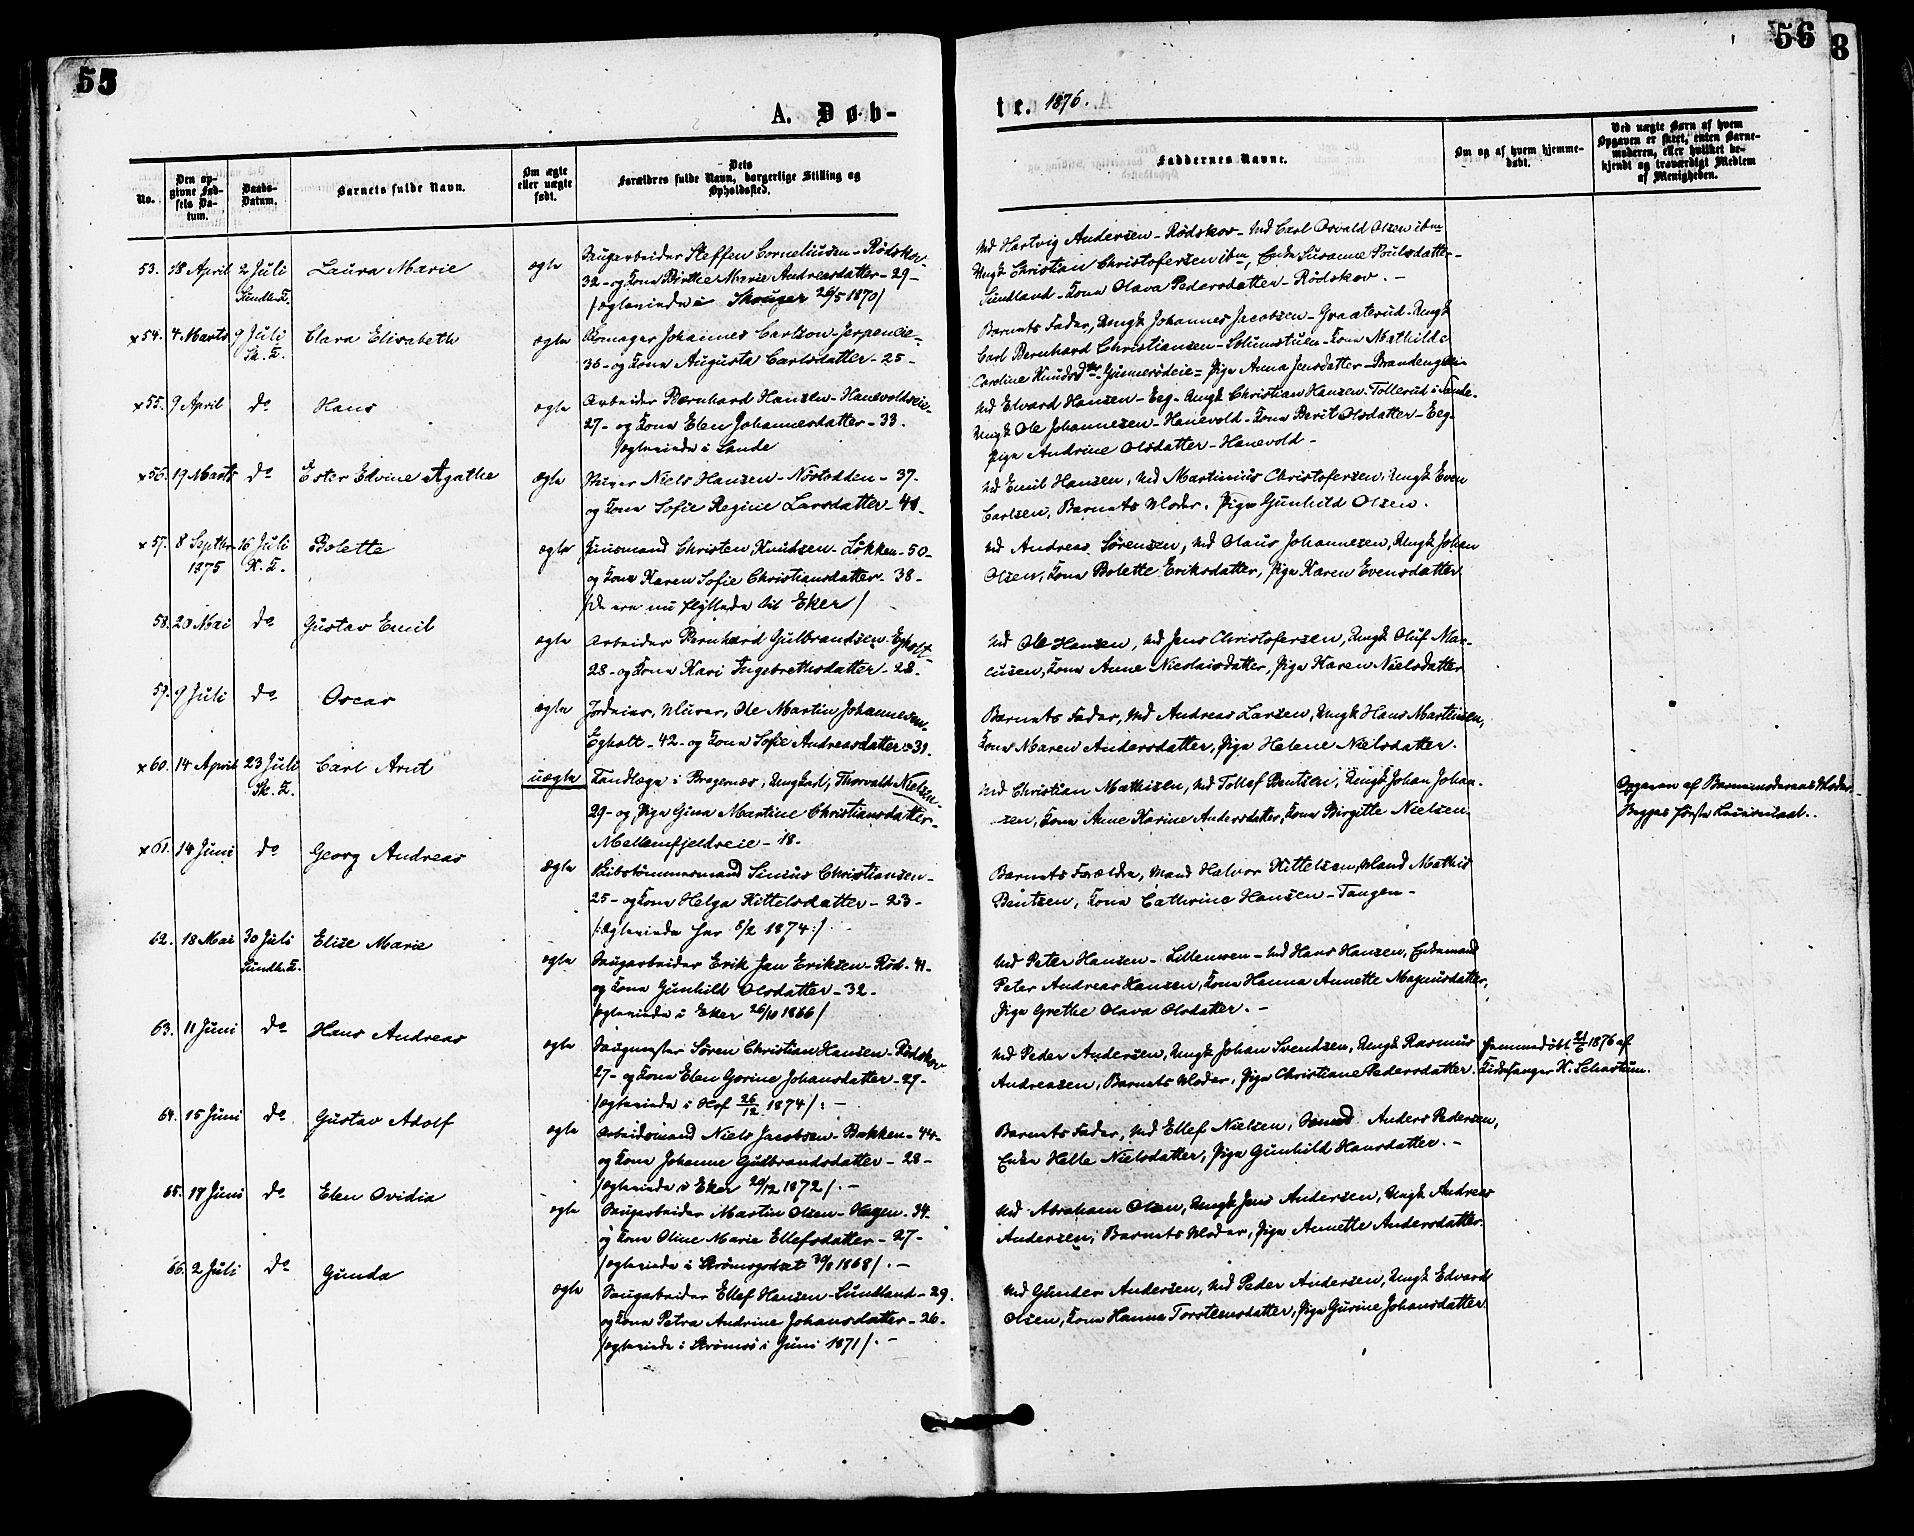 55
56
8
A. Døb-
te. 1876.
No.
Den op-
givne Fød-
sels Da-
tum.
Daabs-
Datum.
Barnets fulde Navn.
Om ægte
eller uægte
født.
Dets
Forældres fulde Navn, borgerlige Stilling og
Opholdssted.
Faddernes Navne.
Om og af hvem hjemme-
døbt.
Ved uægte Børn af hvem
Opgaven er skeet, enten Barne-
moderen, eller hvilket be-
kjendt og troværdigt Medlem
af Menigheden.
53. 18 April 2 Juli Laura Marie ægte Saugarbeider Steffen Corneliusen - Rødskov
Sundh. K. 32 - og Kone Birthe Marie Andreasdatter - 29 -
/ægteviede i Skouger 26/5 1870/
Ud Hartvig Andersen - Rødskov - Ud Carl Osvald Olsen ibm
Ungk Christian Christofersen ibm, Enke Susanne Poulsdatter -
Sundland - Kone Olava Pedersdatter - Rødskov. -
x 54. 4 Marts 9 Juli Clara Elisabeth ægte Johannes Carlson - Jerpeneie -
Sk. K. 36 - og Kone Augusta Carlsdatter - 25 -
Barnets Fader, Ungk Johannes Jacobsen - Graaterud - Ungk
Carl Bernhard Christiansen - Solumstuen - Kone Mathilde
Caroline Knudsdtr - Gusserødeie - Pige Anna Jensdatter - Brandengen -
x 55. 9 April do Hans ægte Arbeider Bernhard Hansen - Hanevoldseie -
27 - og Kone Elen Johannesdatter - 33.
/ægteviede i Sande
Ud Edvard Hansen - Eeg - Ungk Christian Hansen - Tollerud i Sande -
Ungk Ole Johannesen - Hanevold - Kone Berit Olsdatter - Eeg -
Pige Andrine Olsdatter - Hanevold -
x 56. 19 Marts do Ester Edvine Agathe ægte Murer Niels Hansen - Nøstodden - 37.
og Kone Sofie Regine Larsdatter - 41 -
Ud Emil Hansen, Ud Martinius Christofersen, Ungk Even
Carlsen, Barnets Moder, Pige Gunhild Olsen.
x 57. 8 Septbr 16 Juli Bolette ægte Huusmand Christen Knudsen - Løkken - 50 -
1875 K. K. og Kone Karen Sofie Christiansdatter. 38 -
/De ere nu flyttede til Eker/
Ud Andreas Sørensen, Ud Olaus Johannesen, Ungk Johan
Olsen, Kone Bolette Eriksdatter, Pige Karen Evensdatter
58. 20 Mai do Gustav Emil ægte Arbeider Bernhard Gulbrandsen - Egholt -
28 - og Kone Kari Ingebrethsdatter - 28 -
Ud Ole Hansen, Ud Jens Christofersen, Ungk Oluf Mar-
cusen, Kone Anne Nicolaisdatter, Pige Karen Nielsdatter
59. 9 Juli do Oscar ægte Jordeier, Murer, Ole Martin Johannesen -
Egholt - 42 - og Kone Sofie Andreasdatter - 31.
Barnets Fader, Ud Andreas Larsen, Ungk Hans Martinsen,
Kone Maren Andersdatter, Pige Helene Nielsdatter.
x 60. 14 April 23 Juli Carl Arnt uægte Tandlæge i Bragernæs, Ungkarl, Thorvald Nielsen -
Sk. K. 29 - og Pige Gina Martine Christiansdatter -
Mellemfjeldseie - 18.
Ud Christian Mathisen, Ud Tollef Bentsen, Ungk Johan Johan-
sen, Kone Anne Karine Andersdatter, Kone Birgitte Nielsen.
Opgaven af Barnemoderens Moder,
Begges første Leiermaal.
x 61. 14 Juni do Georg Andreas ægte Skibstømmermand Christiansen -
25 - og Kone Helga Kittelsdatter - 23 -
/:Ægteviede her 8/2 1874:/
Barnets Forældre, Mand Halvor Kittelsen, Mand Mathis
Bentsen, Kone Cathrine Hansen - Tangen -
62. 18 Mai 30 Juli Elise Marie ægte Saugarbeider Erik Jan Eriksen - Rød - 41 -
Sundh. K. og Kone Gunhild Olsdatter - 32 -
/ægteviede i Eker 26/10 1866/
Ud Peter Hansen - Lillemoen - Ud Hans Hansen, Enkemand
Peter Andreas Hansen, Kone Hanna Annette Magnusdatter,
Pige Grethe Olava Olsdatter. -
63. 11 Juni do Hans Andreas ægte Saugmester Søren Christian Hansen - Rødskov
27 - og Kone Elen Gorine Johansdatter - 29 -
/ægteviede i Hof 26/12 1874/: -
Ud Peder Andersen, Ungk Johan Svendsen, Ungk Rasmus
Andreasen, Barnets Moder, Pige Christiane Pedersdatter.
Hjemmedøbt 21/6 1876 af
Kirkesanger K. Sebastium.
64. 15 Juni do Gustav Adolf ægte Arbeidsmand Niels Jacobsen - Bakken - 44 -
og Kone Johanne Gulbrandsdatter - 28 -
/ægteviede i Eker 29/12 1872/. -
Barnets Fader, Ud Ellef Nielsen, Anders Pedersen,
Enke Helle Nielsdatter, Pige Gunhild Hansdatter. -
65. 17 Juni do Elen Ovidia ægte Saugarbeider Martin Olsen - Hagen - 34 -
og Kone Oline Marie Ellefsdatter - 27 -
/ægteviede i Strømsgodset 1868/. -
Ud Abraham Olsen, Ungk Jens Andersen, Ungk Andreas
Andersen, Barnets Moder, Pige Annette Andersdatter.
66. 2 Juli do Gunda ægte Saugarbeider Ellef Hansen - Sundland - 29.
og Kone Petra Andrine Johansdatter - 26 -
/ægteviede i Strømsø i Juni 1871/. -
Ud Gunder Andersen, Ud Peder Andersen, Ungk Edvard
Olsen, Kone Hanna Torstensdatter, Pige Gurine Johansdatter